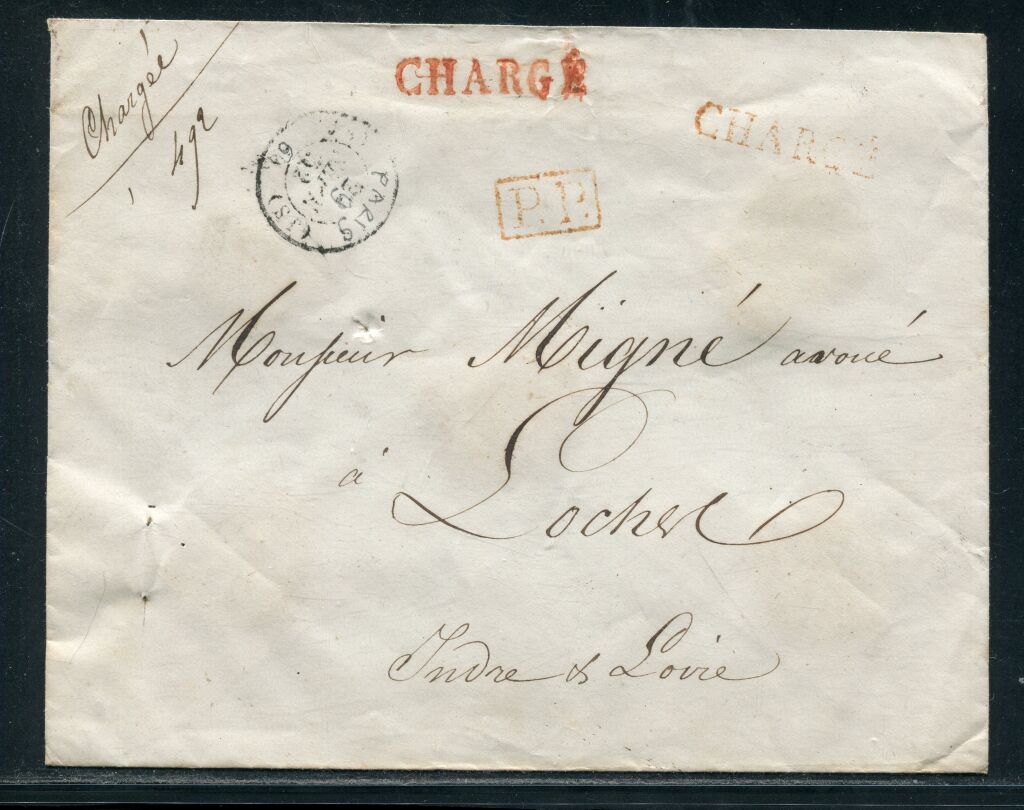 Chargée
492
CHARGÉ
CHARGÉ
P.P.
PARIS
(SI)
Monsieur Migné avoué
à
Loches
Indre & Loire